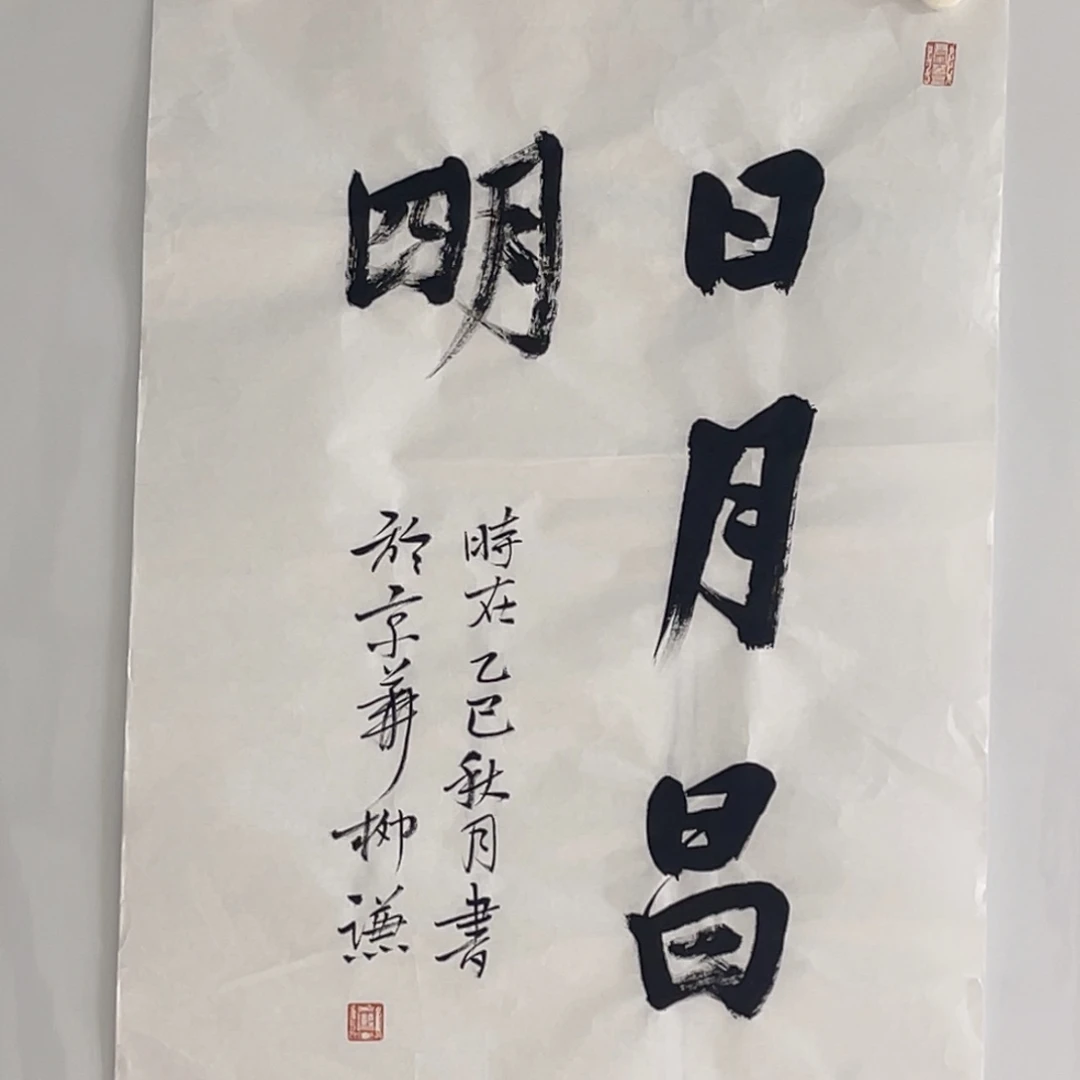 日月昌
明
時在乙巳秋月書
於京華柳謙